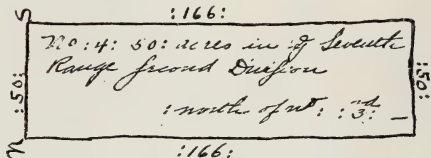 S
:166:
No :4: 50: acres in ye Seventh
Range Second Division
: north of no : :3rd: —
:50:
:50:
n
:166: